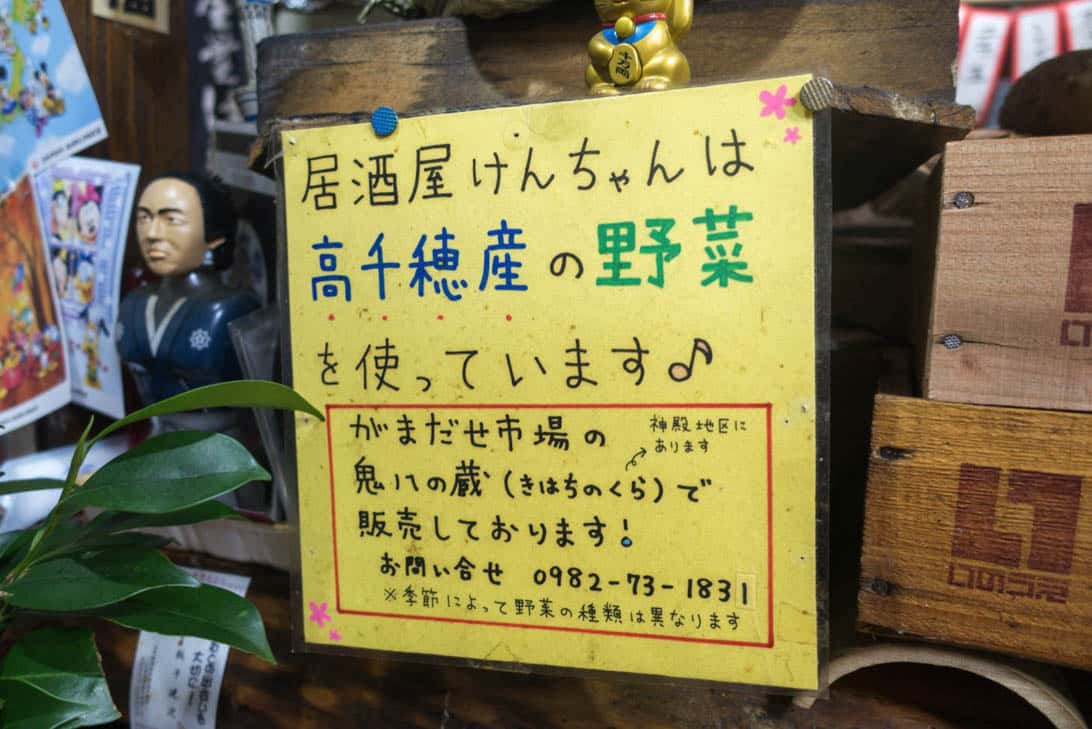 居酒屋けんちゃんは
高千穂産の野菜
を使っています♪
がまだせ市場の
神殿地区に
あります
鬼八の蔵(きはちのくら)で
販売しております!
お問い合せ 0982-73-1831
※季節によって野菜の種類は異なります